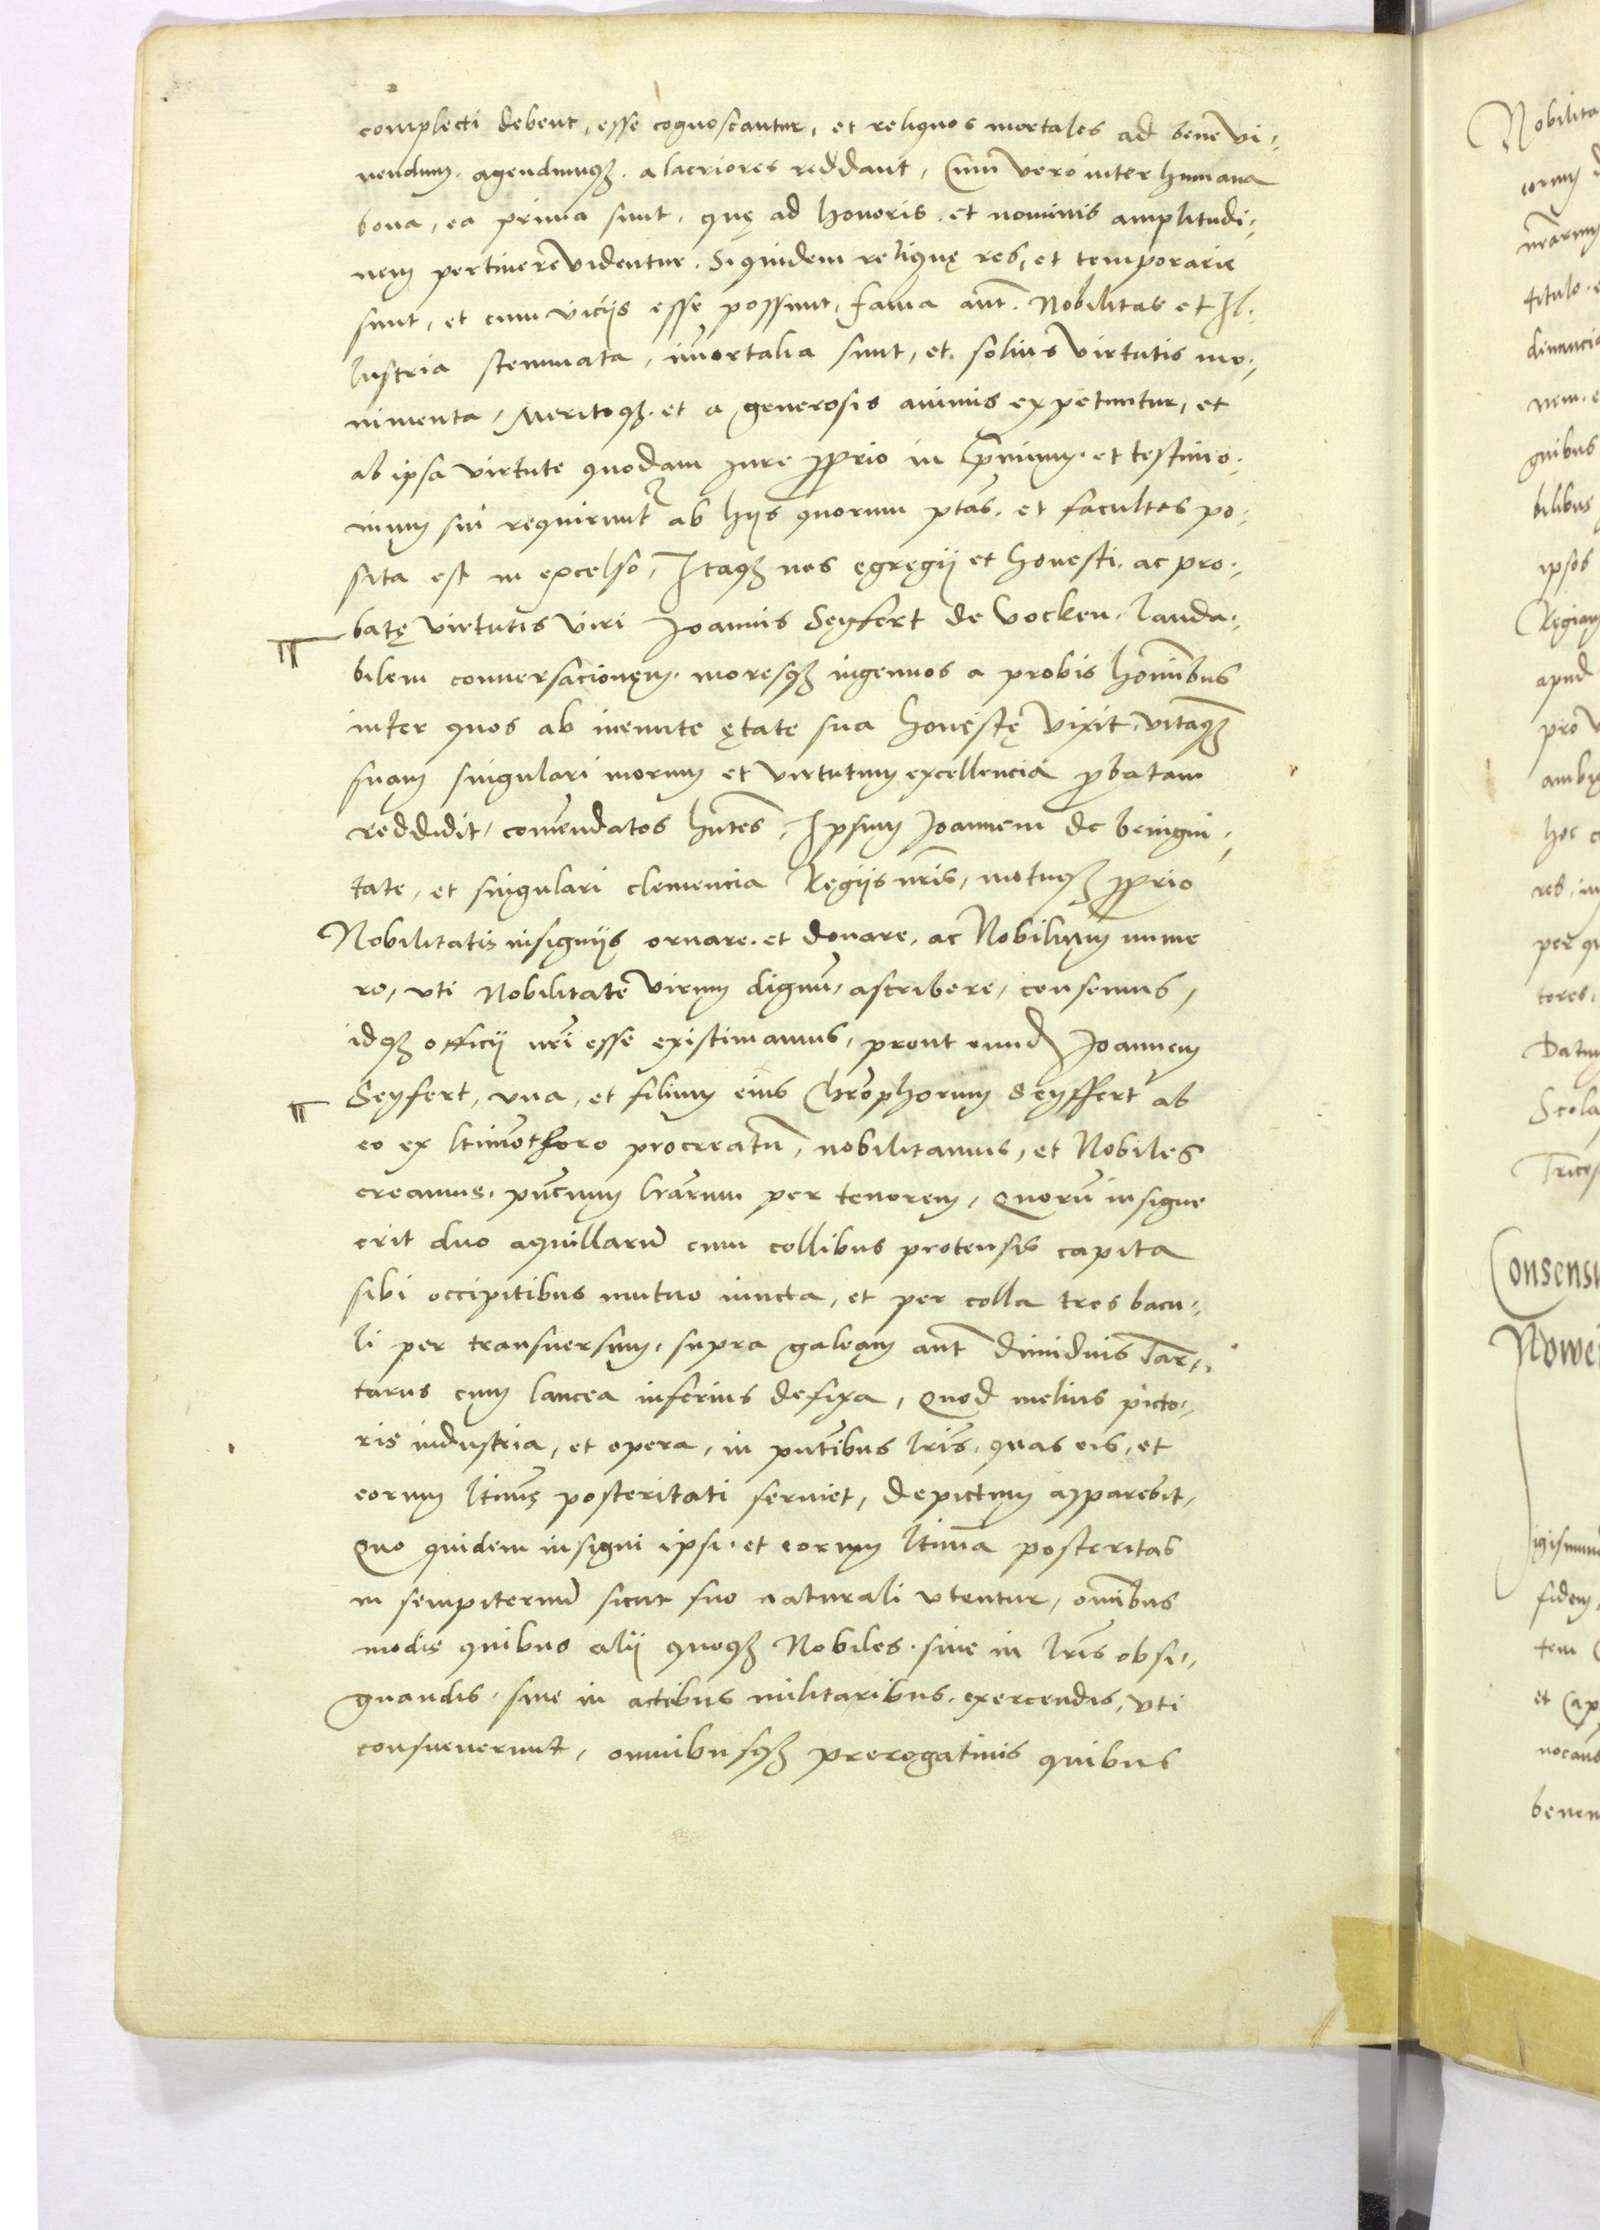 complecti debent, esse cognoscantur, et reliquos mortales ad bene vi-
uendum, agendumqȝ alacriores reddant, Cum vero inter humana
bona, ea prima sunt, quę ad honoris et nominis amplitudi-
nem pertinere videntur. Siquidem reliquę res, et temporarie
sunt, et cum vicijs esse possunt, fama aut. Nobilitas et Il-
lustria stemmata, imortalia sunt, et solius virtutis mo-
nimenta, Meritoqȝ et a generosis animis expetuntur, et
ab ipsa virtute quodam iure proprio in pmium et testimo-
nium sui requirunt ab hijs quorum ptas. et facultas po-
sita est in excelso, Itaqȝ nos egregij et honesti ac pro-
batę virtutis viri Joannis Seyfert de Vocken lauda-
bilem conuersacionem moresqȝ ingenuos a probis hominibus
inter quos ab ineunte ętate sua honestę vixit, vitamqȝ
suam singulari morum et virtutum excellencia probatam
reddidit, comendatos hntes, Ipsum Joannem de benigni-
tate, et singulari clemencia Regijs nris, motuqȝ proprio
Nobilitatis insignijs ornare et donare, ac Nobilium nume
ro, vti Nobilitate virum dignu, ascribere, censemus,
idqȝ officij nri esse existimamus, prout eund Joannem
Seyfert, vna, et filium eius Chrophorum Seyffert ab
eo ex ltimo thoro procreatu, nobilitamus, et Nobiles
creamus, pncium lrarum per tenorem, Quoru insigne
erit duo aquillaru cum collibus protensis capita
sibi occipitibus mutuo iuncta, et per colla tres bacu-
li per transuersum, supra galeam aut dimidius Tar-
tarus cum lancea inferius defixa, Quod melius picto-
ris industria, et opera, in pntibus lris, quas eis, et
eorum ltimę posteritati seruiet, depictum apparebit,
Quo quidem insigni ipsi et eorum ltima posteritas
in sempiternu sicut suo naturali vtentur, omibus
modis quibus alij quoqȝ Nobiles siue in lris obsi-
gnandis, siue in actibus militaribus exercendis, vti
consueuerunt, omnibusqȝ prerogatiuis quibus
Nobilita
titulo
dinancia
gnibus
bilibus
ipsos
Regiam
apud
pro v
hoc
per qu
Scola
Consens
Nowe
fidem
tem
et Cap